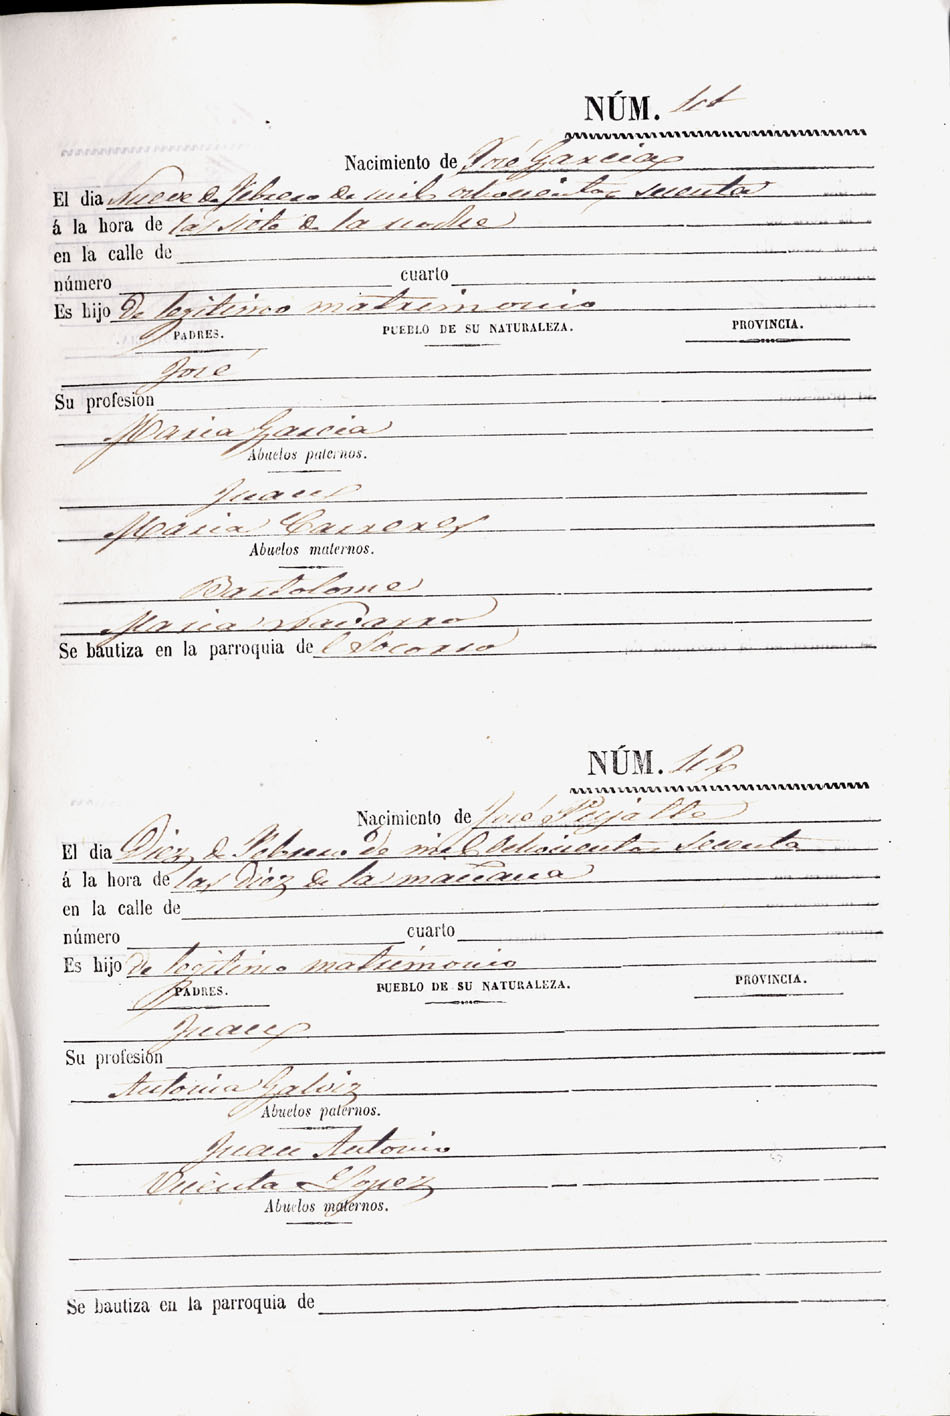 NÚM.
Nacimiento de José Garcia
El dia Nueve de Febrero de mil ochocientos secenta
á la hora de las siete de la noche
en la calle de
número cuarto
Es hijo De legitimo matrimonio
PADRES. PUEBLO DE SU NATURALEZA. PROVINCIA.
José
Su profesion
Maria Garcia
Abuelos paternos.
Juan
Maria Carreres
Abuelos maternos.
Bartolome
Maria Navarro
Se bautiza en la parroquia de l Socorro
NÚM. 42
Nacimiento de José Pujalte
El dia Diez de Febrero de mil Ochocientos secenta
á la hora de las Diez de la mañana
en la calle de
número cuarto
Es hijo de legitimo matrimonio
PADRES. PUEBLO DE SU NATURALEZA. PROVINCIA.
Juan
Su profesion
Antonia Galviz
Abuelos paternos.
Juan Antonio
Vicenta Lopez
Abuelos maternos.
Se bautiza en la parroquia de